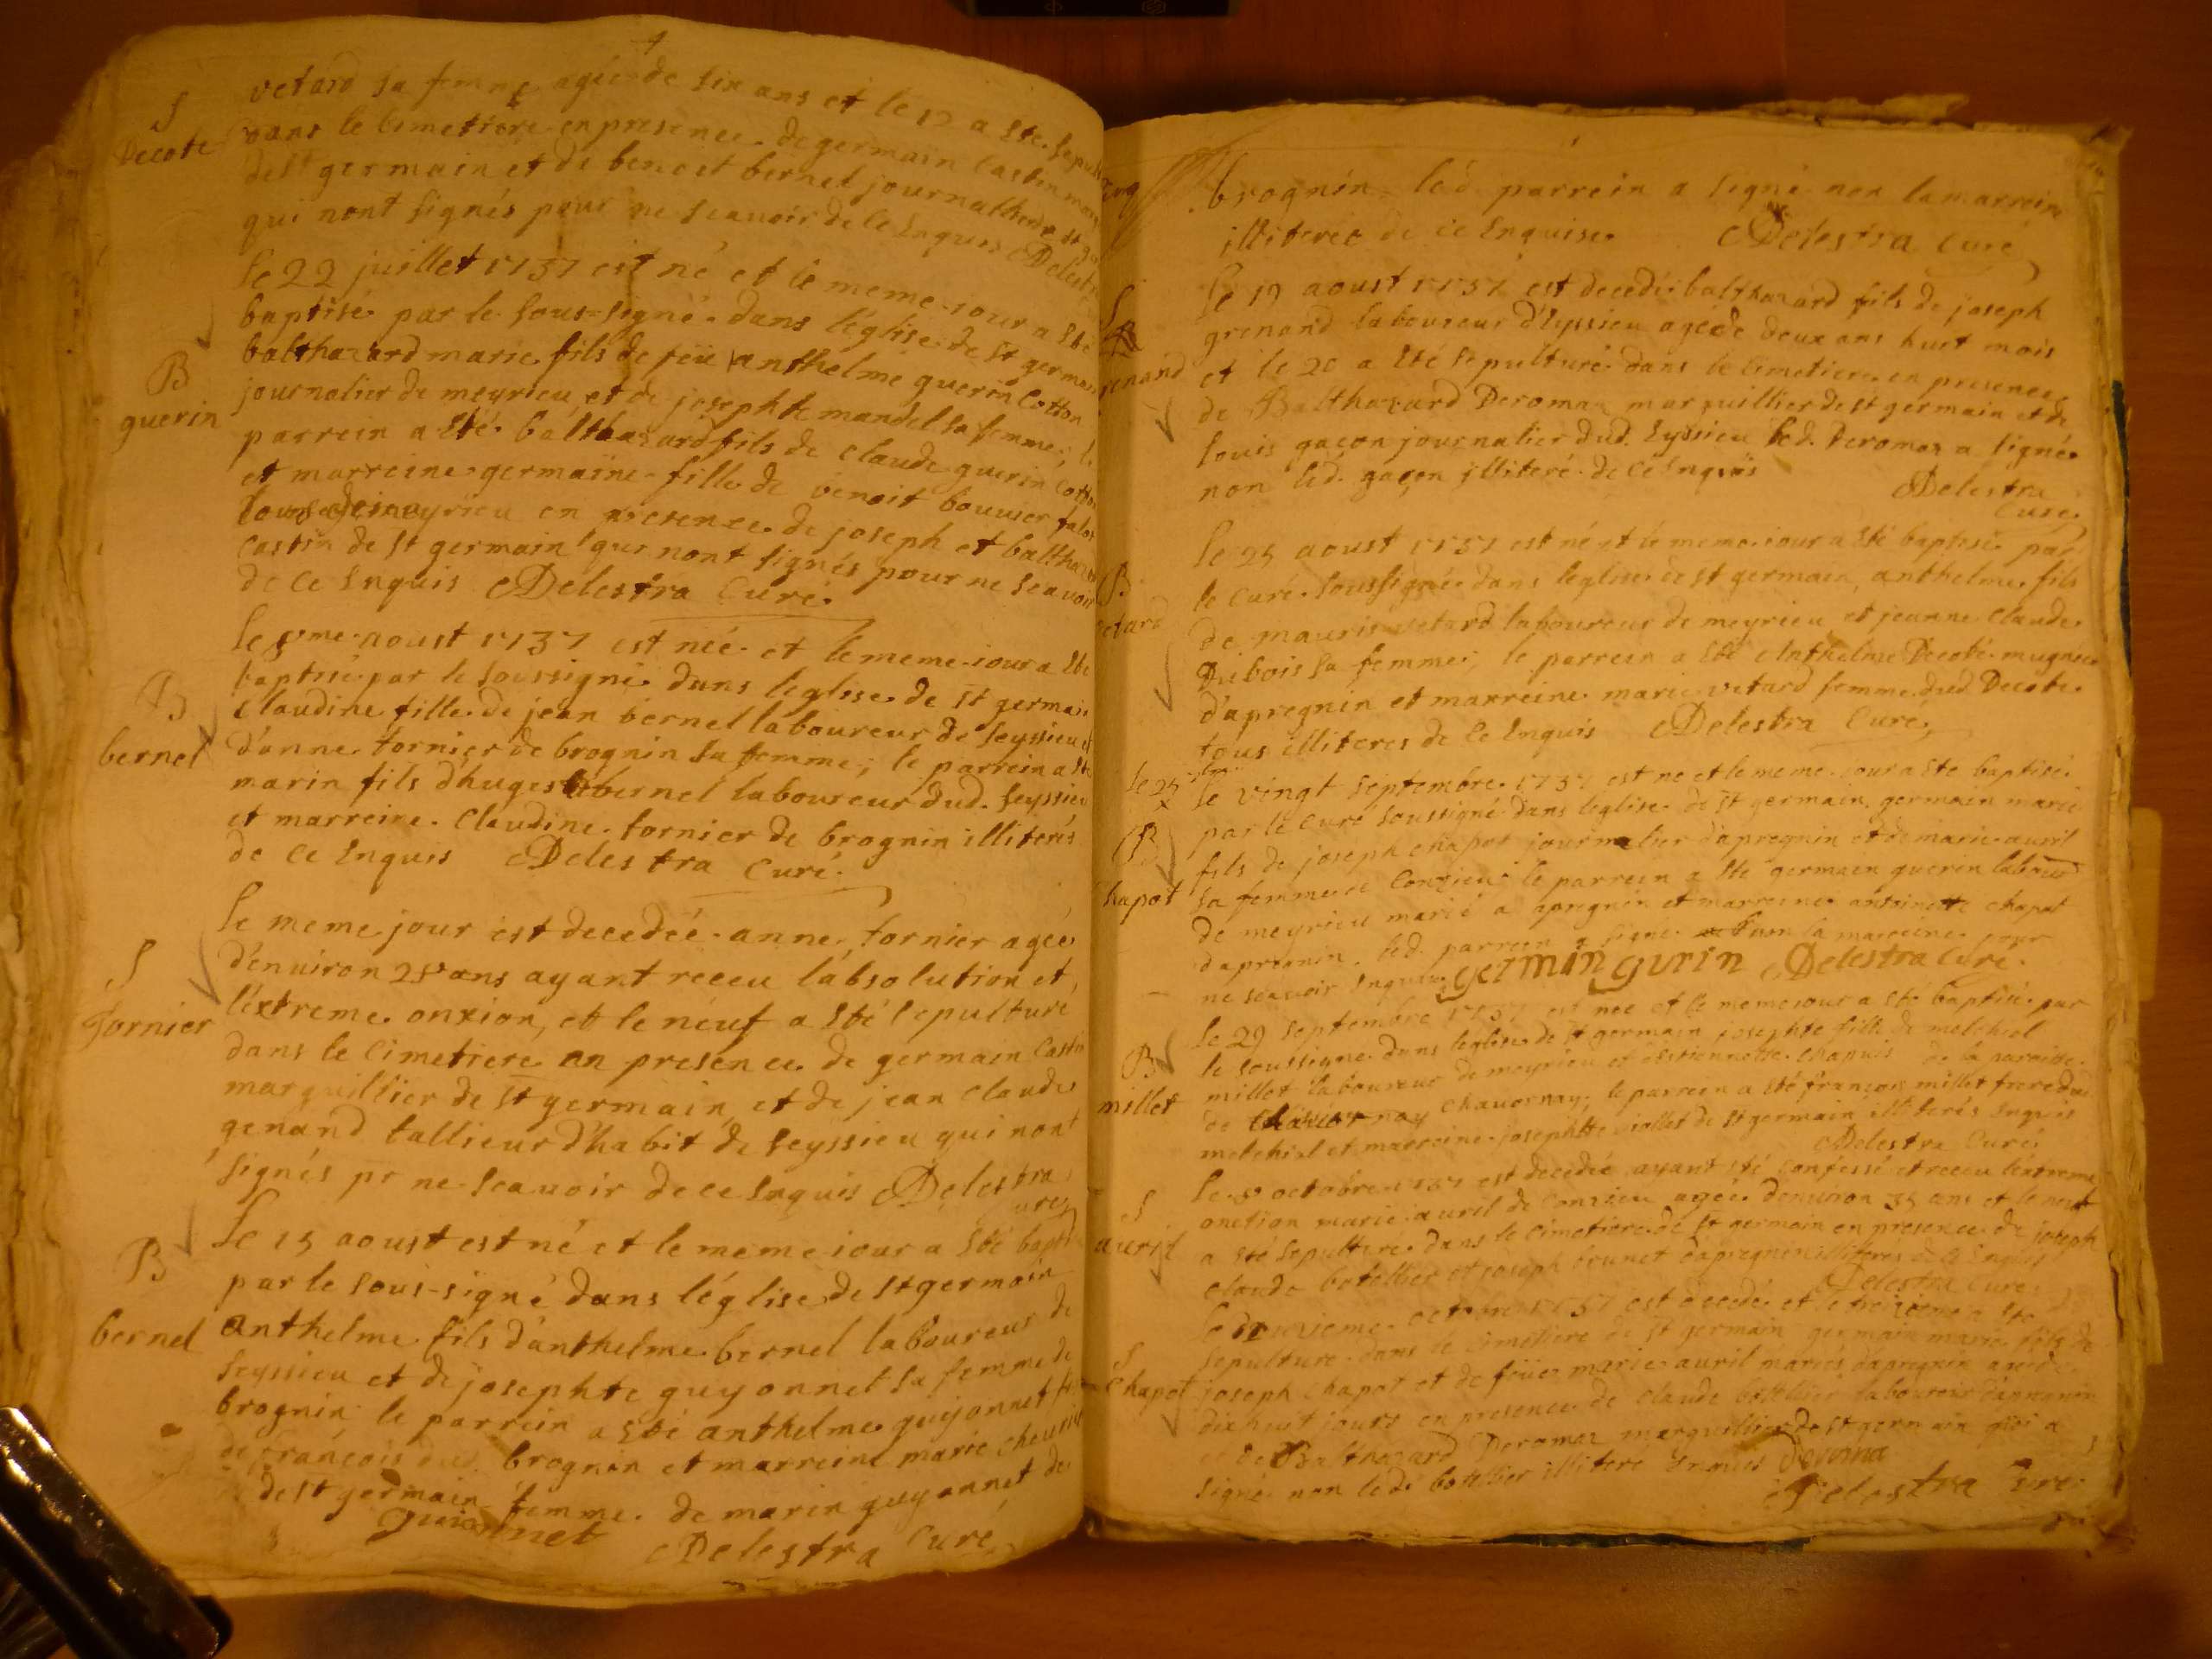 vetard sa femme agée de six ans et le 12 a Ste Sepult
S
Decote
dans le Cimetiere en presence de germain Castin mar
de St germain et de benoit bernel journallier de St g
qui nont signés pour ne sçauoir de ce Enquis Delestra
le 22 juillet 1737 est né et le meme iour a Ste
baptisé par le sous-signé dans l'église de St germain
B
guerin
balthazard marie fils de feu anthelme guerin Cotton
journalier de meyrieu et de josephte mandel sa femme; le
parrein a Sté balthazard fils de Claude guerin Cotton
et marreine germaine fille de benoit bouuier
de meyrieu en presence de joseph et balthazard
Castin de St germain qui nont signés pour ne sçauoir
de ce Enquis Delestra Curé
le 8me aoust 1737 est née et le meme iour a Sté
baptisé par le soussigné dans l'eglise de St germain
B
bernel
Claudine fille de jean bernel laboureur de Seyssieu et
d'anne fornier de brognin sa femme; le parrein a Sté
marin fils d'hugest bernel laboureur dud. Seyssieu
et marreine Claudine fornier de brognin illiterés
de ce Enquis Delestra Curé
le meme jour est decedée anne fornier agée
S
fornier
d'enuiron 28 ans ayant receu l'absolution et
l'extreme onxion, et le neuf a Sté sepulturé
dans le Cimetiere an presence de germain Castin
marguillier de St germain et de jean Claude
genand tallieur d'habit de Seyssieu qui nont
signés pr ne sçauoir de ce Enquis Delestra
Curé
le 15 aoust est né et le meme iour a Sté bapti
B
bernel
par le sous-signé dans l'église de St germain
anthelme fils d'anthelme bernel laboureur de
Seyssieu et de josephte guyonnet sa femme de
brognin le parrein a Sté anthelme guyonnet fi
de françois dud. brognin et marreine marie
de St germain femme de marin guyonnet de
guionnet Delestra Curé
brognin led. parrein a signé non la marreine
illiterée de ce Enquise Delestra Curé
le 19 aoust 1737 est decedé balthazard fils de joseph
S
grenand laboureur d'Eyssieu agé de deux ans huit mois
et le 20 a Sté Sepulturé dans le Cimetiere en presence
de Balthazard Deromaz marguillier de St germain et de
louis gaçon journalier dud. Eyssieu led. Deromaz a signé
non led. gaçon illiteré de ce Enquis
Delestra
Curé
le 25 aoust 1737 est né et le meme iour a Sté baptisé par
B
vetard
le Curé soussigné dans l'eglise de St germain, anthelme fils
de mauris vetard laboureur de meyrieu et jeanne Claude
Dubois sa femme; le parrein a Sté Anthelme Decote mugnier
d'apregnin et marreine marie vetard femme dud. Decote
tous illiteres de ce Enquis Delestra Curé
le 25
le vingt septembre 1737 est né et le meme iour a Ste baptisé
B
chapot
par le Curé soussigné dans l'eglise de St germain, germain marie
fils de joseph chapot journalier d'apregnin et de marie auril
sa femme de Conzieu le parrein a Ste germain guerin labour
de meyrieu marié a apregnin et marreine antoinette chapot
d'apregnin. led. parrein a signé non la marreine pour
ne sçauoir Enquise germin gurin Delestra Curé
le 29 septembre 1737 est née et le meme iour a Sté baptisé par
B
millet
le soussigné dans l'eglise de St germain josephte fille de melchiol
millet laboureur de meyrieu et d'estiennette chapuis de la paroisse
de chauornay; le parrein a Sté françois millet frere dud
melchiol et marreine josephte uiollet de St germain illiterés Enquis
Delestra Curé
le 8 octobre 1737 est decedée ayant Sté Confessé et receu l'extreme
S
auril
onction marie auril de Conzieu agée denuiron 35 ans et le neuf
a Sté Sepulturé dans le Cimetiere de St germain en presence de joseph
Claude botellier et joseph brunet d'apregnin illiteres de ce Enquis
Delestra Curé
le douzieme octobre 1737 est decedé et le treizieme a Sté
S
chapot
sepulturé dans le Cimetiere de St germain germain marie fils de
joseph chapot et de feüe marie auril mariés d'apregnin agé de
dixhuit jours en presence de Claude botellier laboureur d'apregnin
et de Balthazard Deromaz marguillier de St germain qui a
signé non led. botellier illiteré Enquis
Delestra Curé